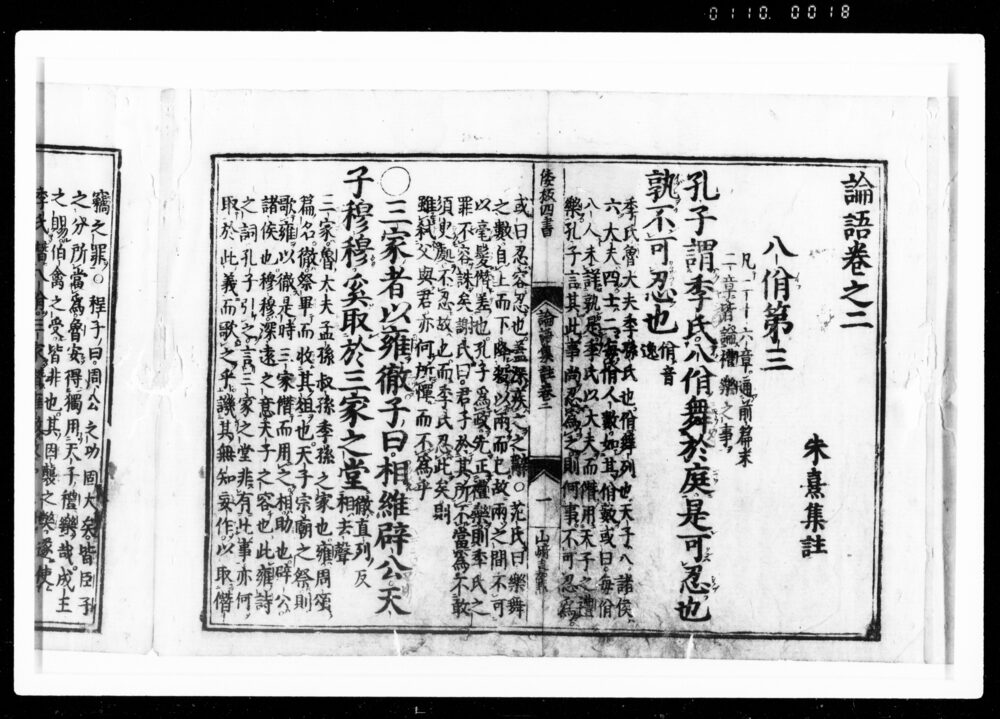 0110. 0018
論語卷之二
朱熹集註
八佾第三
凡二十六章通前篇末
二章皆論禮樂之事
孔子謂季氏八佾舞於庭是可忍也
孰不可忍也
佾音
逸
季氏魯大夫季孫氏也佾舞列也天子八諸侯
六大夫四士二每佾人數如其佾數或曰每佾
八人未詳孰是季氏以大夫而僭用天子之禮
樂孔子言其此事尚忍為之則何事不可忍為
倭板四書
論語集註卷二
一
山崎嘉點
或曰忍容忍也蓋深疾之之辭○范氏曰樂舞
之數自上而下降殺以兩而已故兩之間不可
以毫髮僭差也孔子為政先正禮樂則季氏之
罪不容誅矣謝氏曰君子於其所不當為不敢
須臾處不忍故也而季氏忍此矣則
雖弒父與君亦何所憚而不為乎
○三家者以雍徹子曰相維辟公天
子穆穆奚取於三家之堂
徹直列反
相去聲
三家魯大夫孟孫叔孫季孫之家也雍周頌
篇名徹祭畢而收其俎也天子宗廟之祭則
歌雍以徹是時三家僭而用之相助也辟公
諸侯也穆穆深遠之意天子之容也此雍詩
之詞孔子引之言三家之堂非有此事亦何
取於此義而歌之乎譏其無知妄作以取僭
竊之罪○程子曰周公之功固大矣皆臣子
之分所當為魯安得獨用天子禮樂哉成王
之賜伯禽之受皆非也其因襲之弊遂使